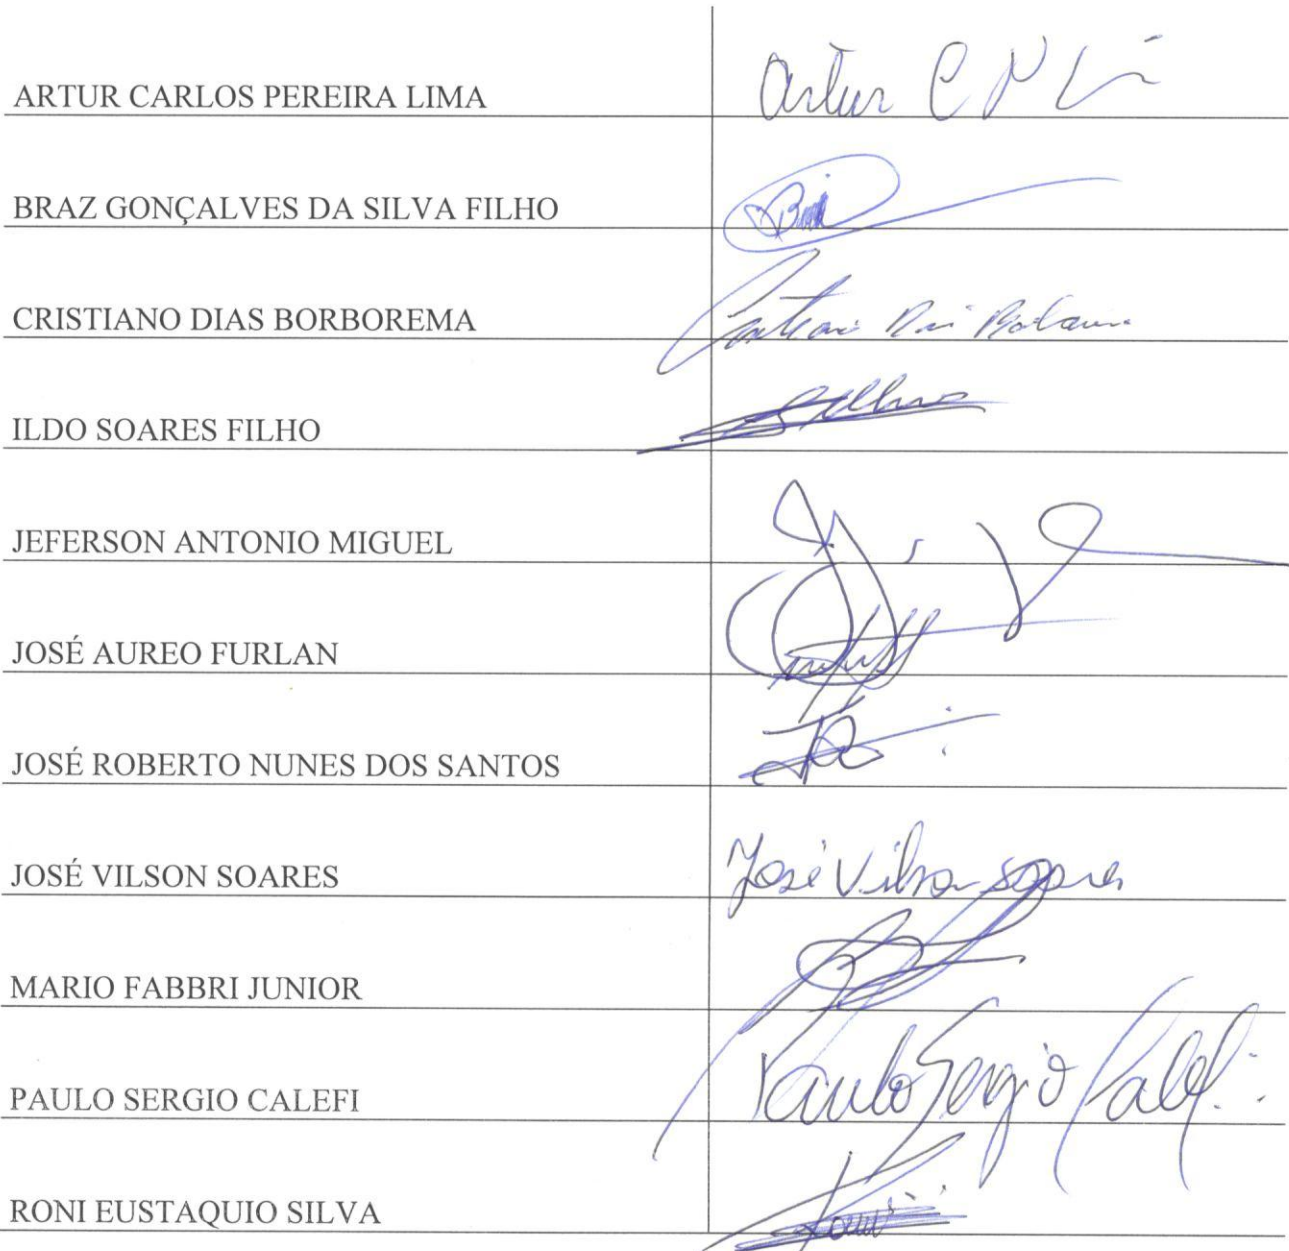 ARTUR CARLOS PEREIRA LIMA Artur C P L
BRAZ GONÇALVES DA SILVA FILHO
CRISTIANO DIAS BORBOREMA
ILDO SOARES FILHO
JEFERSON ANTONIO MIGUEL
JOSÉ AUREO FURLAN
JOSÉ ROBERTO NUNES DOS SANTOS
JOSÉ VILSON SOARES José Vilson Soares
MARIO FABBRI JUNIOR
PAULO SERGIO CALEFI Paulo Sergio Calefi
RONI EUSTAQUIO SILVA Roni